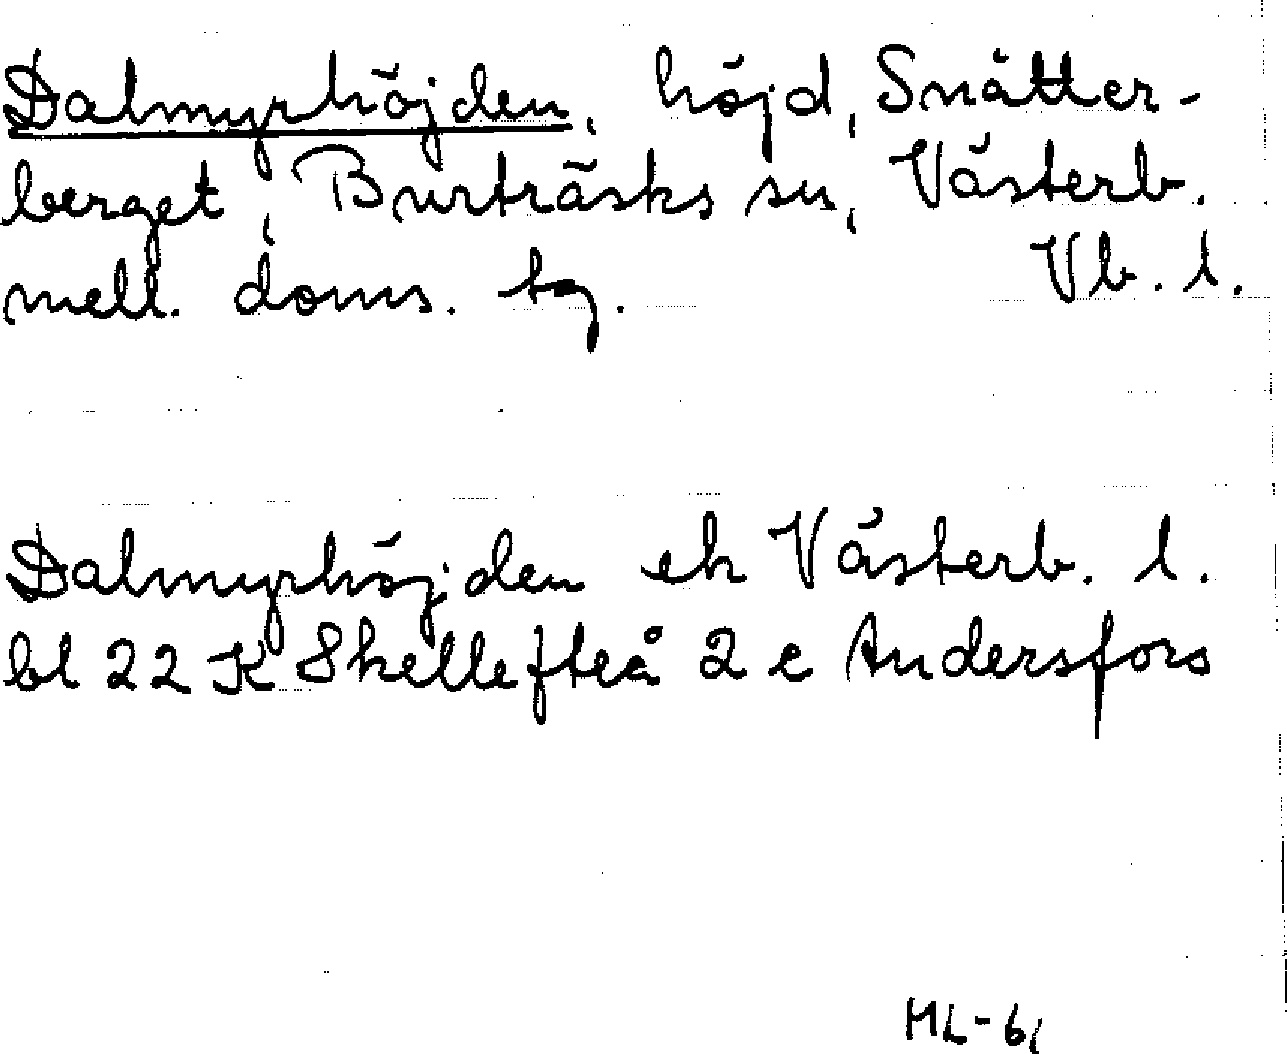 Dalmyrhöjden, höjd, Snätter-
berget, Burträsks sn, Västerb.
mell. doms. tg. Vb. l.
Dalmyrhöjden ek Västerb. l.
bl 22 K Skellefteå 2 c Andersfors
HL-61